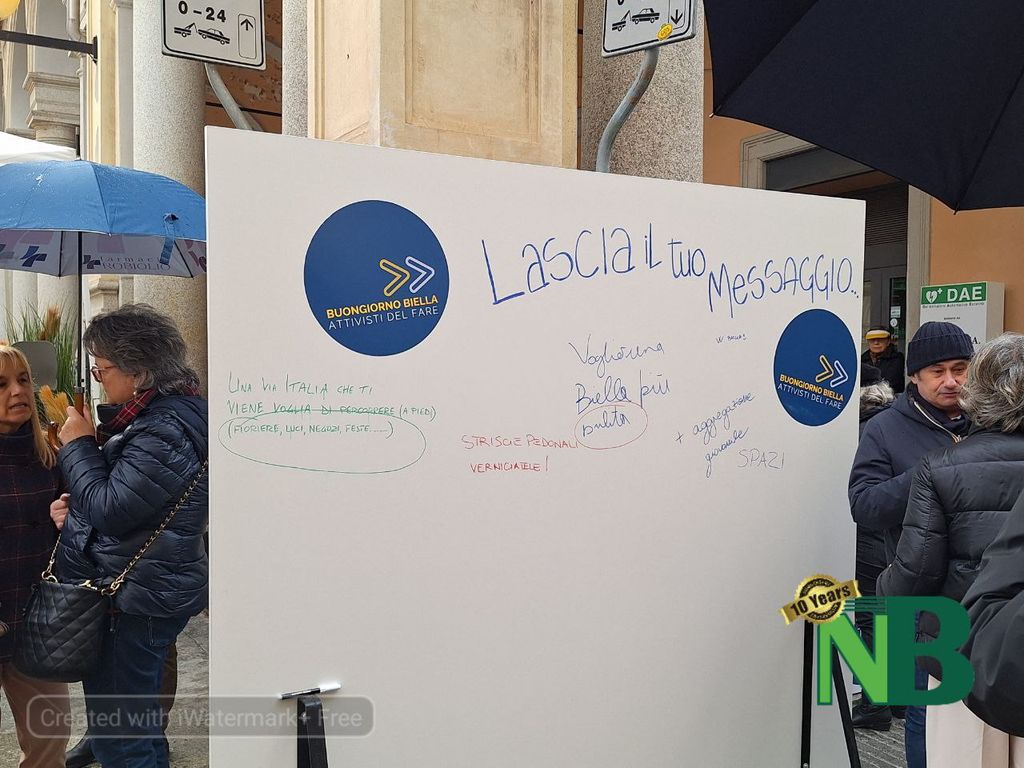 0-24
Farmacia
ROBIOLIO
BUONGIORNO BIELLA
ATTIVISTI DEL FARE
LASCIA IL TUO
MESSAGGIO...
W BIELLA!!
UNA VIA ITALIA CHE TI
VIENE VOGLIA DI PERCORRERE (A PIEDI)
(FIORIERE, LUCI, NEGOZI, FESTE.....)
STRISCIE PEDONALI
VERNICIATELE!
Voglio una
Biella più
pulita
+ aggregazione
giovanile
SPAZI
BUONGIORNO BIELLA
ATTIVISTI DEL FARE
DAE
Defibrillatore Automatico Esterno
10 Years
NB
Created with iWatermark+ Free